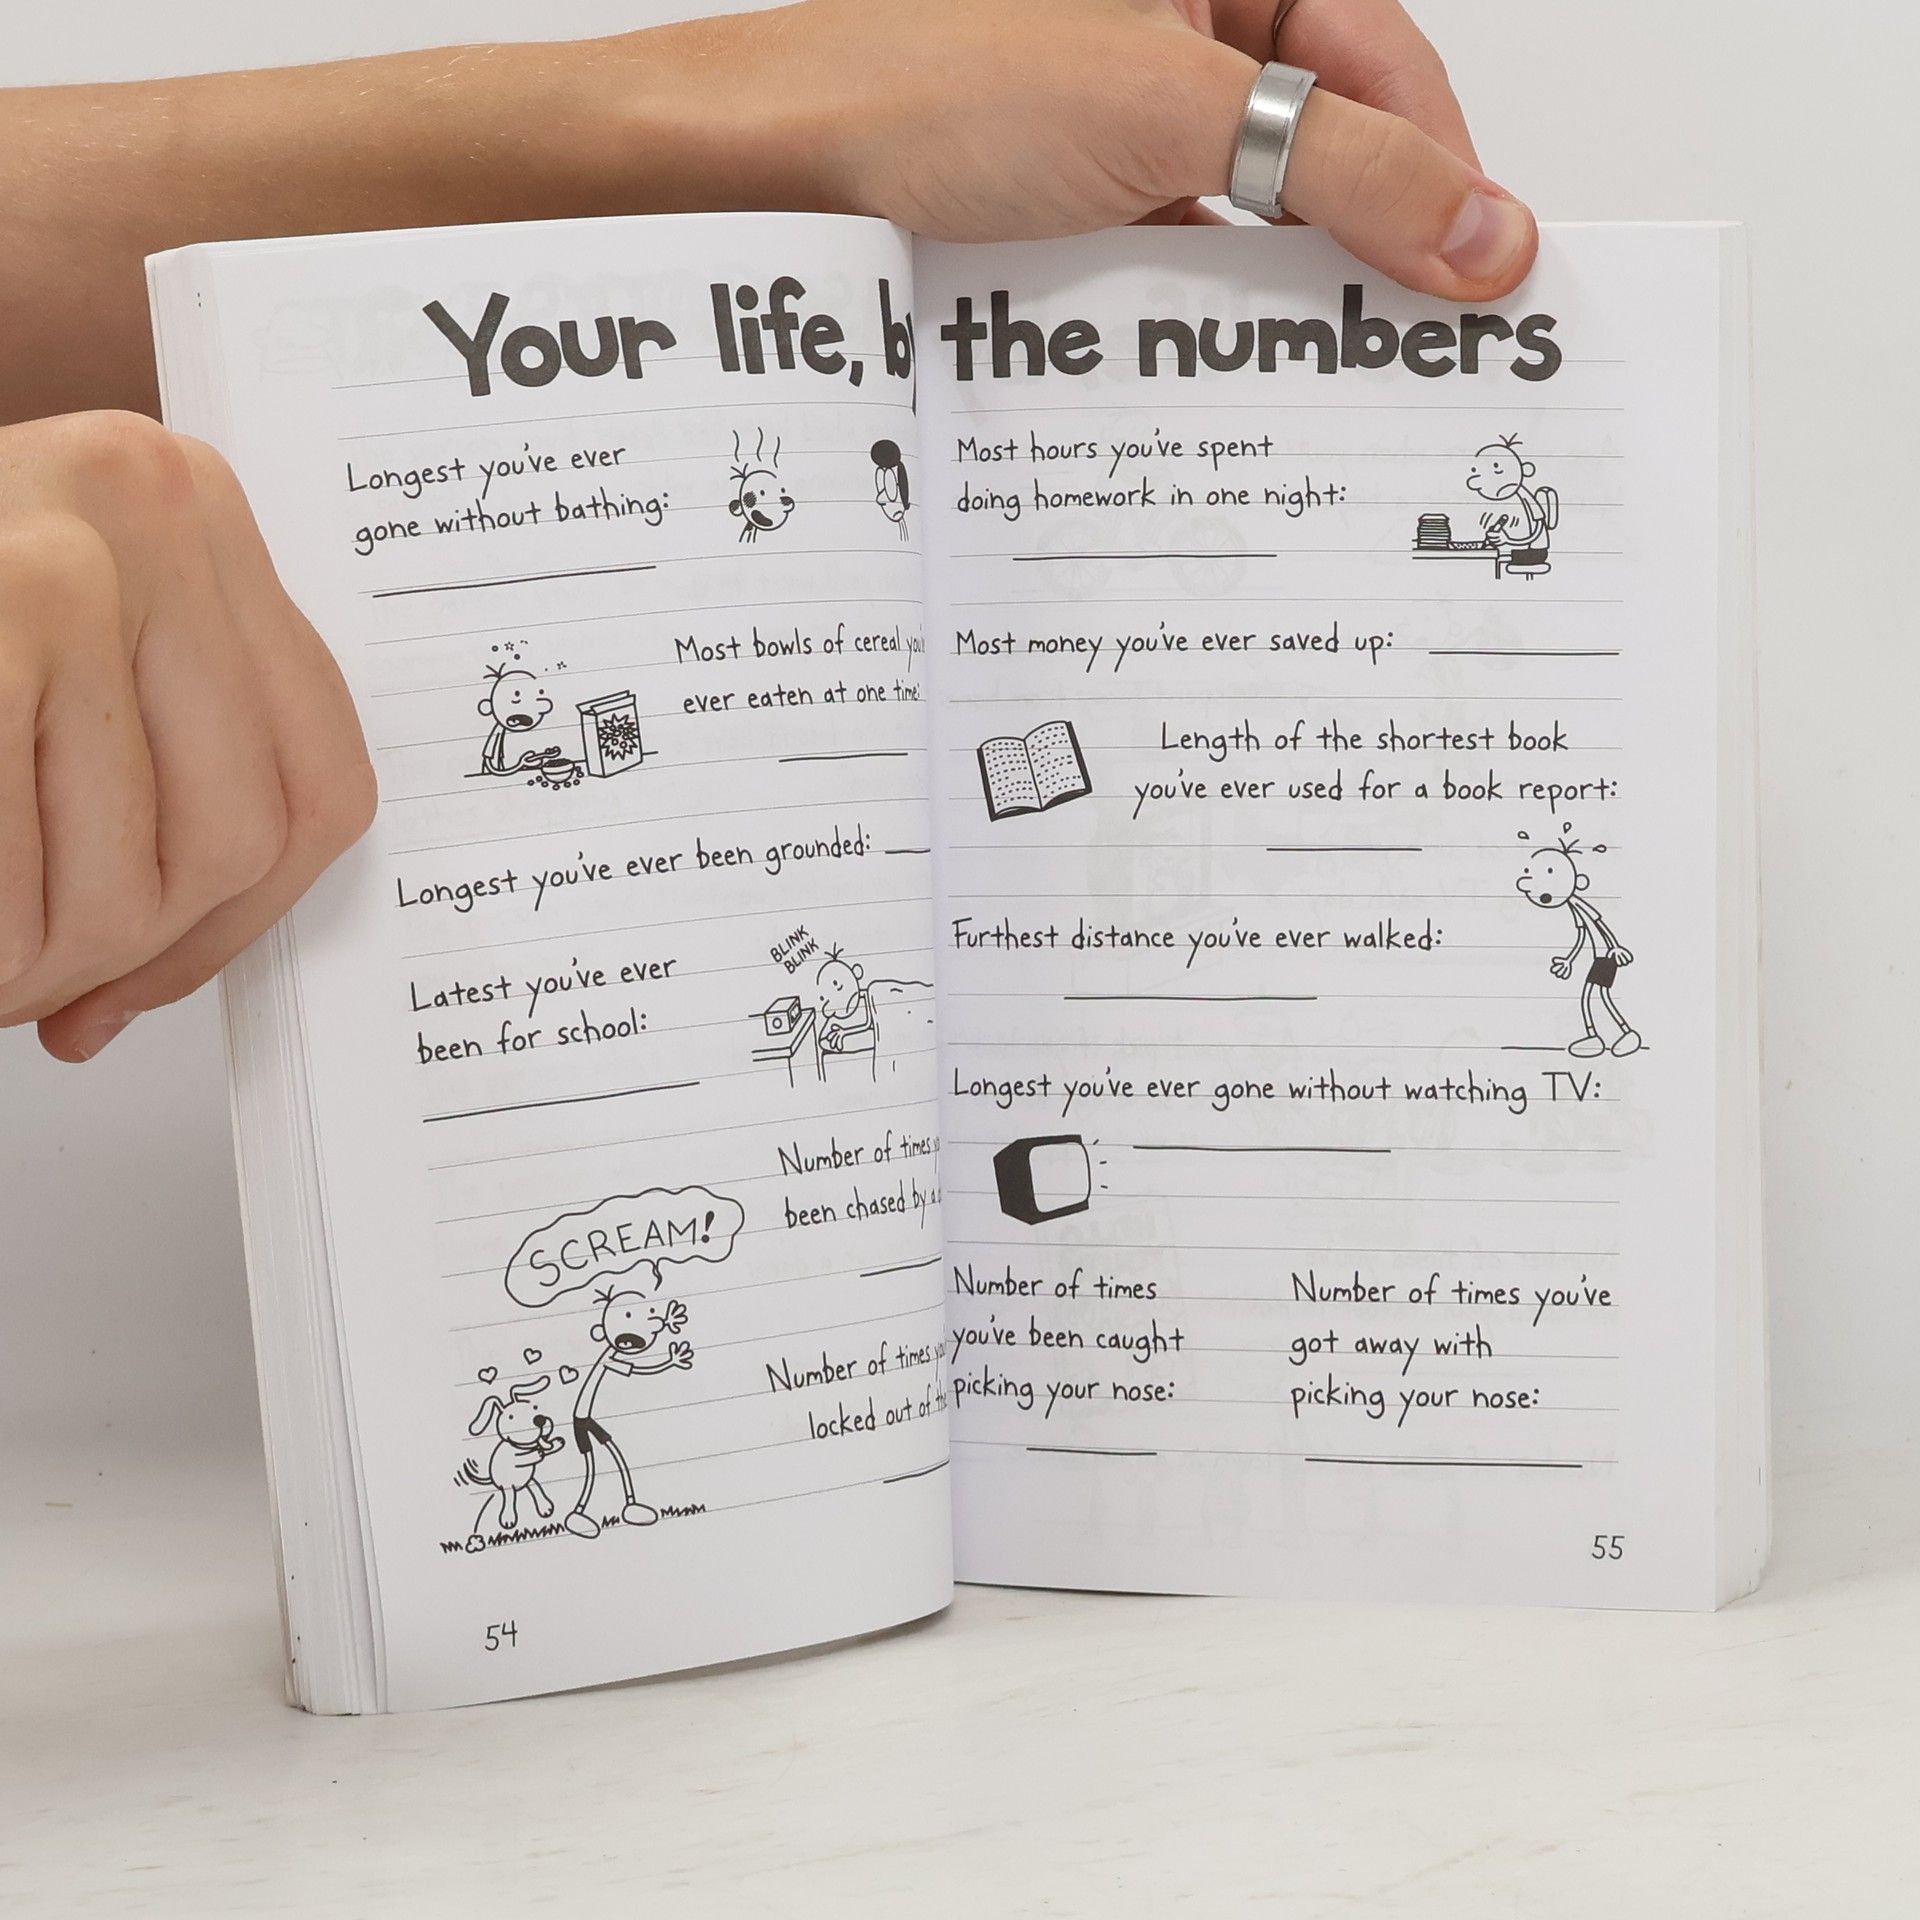 Your life, by the numbers
Longest you've ever
gone without bathing:
Most bowls of cereal
ever eaten at one time:
Longest you've ever been grounded:
Latest you've ever
been for school:
BLINK
BLINK
Number of times
been chased by a
SCREAM!
Number of times
locked out of the
54
Most hours you've spent
doing homework in one night:
Most money you've ever saved up:
Length of the shortest book
you've ever used for a book report:
Furthest distance you've ever walked:
Longest you've ever gone without watching TV:
Number of times
you've been caught
picking your nose:
Number of times you've
got away with
picking your nose:
55